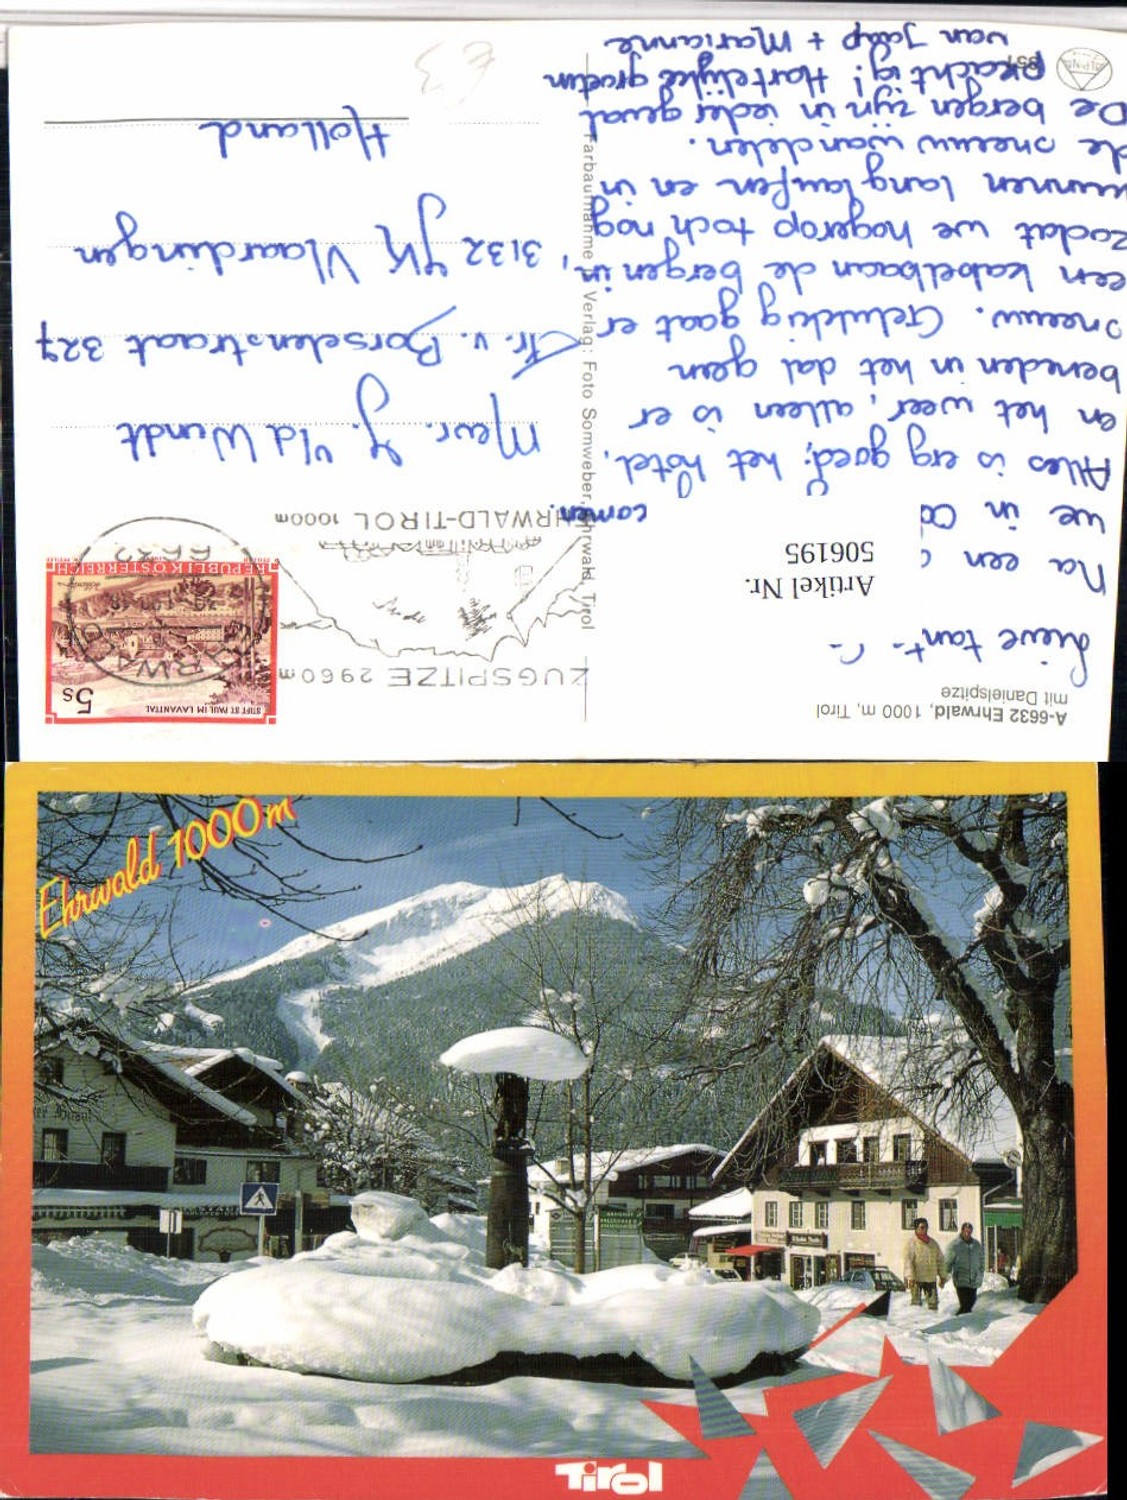 A-6632 Ehrwald, 1000 m, Tirol
mit Danielspitze
Lieve tan
Na een
we in
comen.
Alles is erg goed; het hotel,
en het weer, alleen is er
beneden in het dal geen
sneeuw. Gelukkig gaat er
een kabelbaan de bergen in,
zodat we hogerop toch nog
kunnen langlaufen en in
de sneeuw wandelen.
De bergen zijn in ieder geval
prachtig! Hartelijke groeten
van Jaap + Marianne
Artikel Nr.
506195
Farbaufnahme Verlag: Foto Somweber, Ehrwald, Tirol
ZUGSPITZE 2960m
EHRWALD-TIROL 1000m
STIFT ST. PAUL IM LAVANTTAL
5s
REPUBLIK ÖSTERREICH
6632
Mevr. J. v/d Windt
Fr. v. Borselenstraat 327
3132 JK Vlaardingen
Holland
€3
Ehrwald 1000m
Tirol